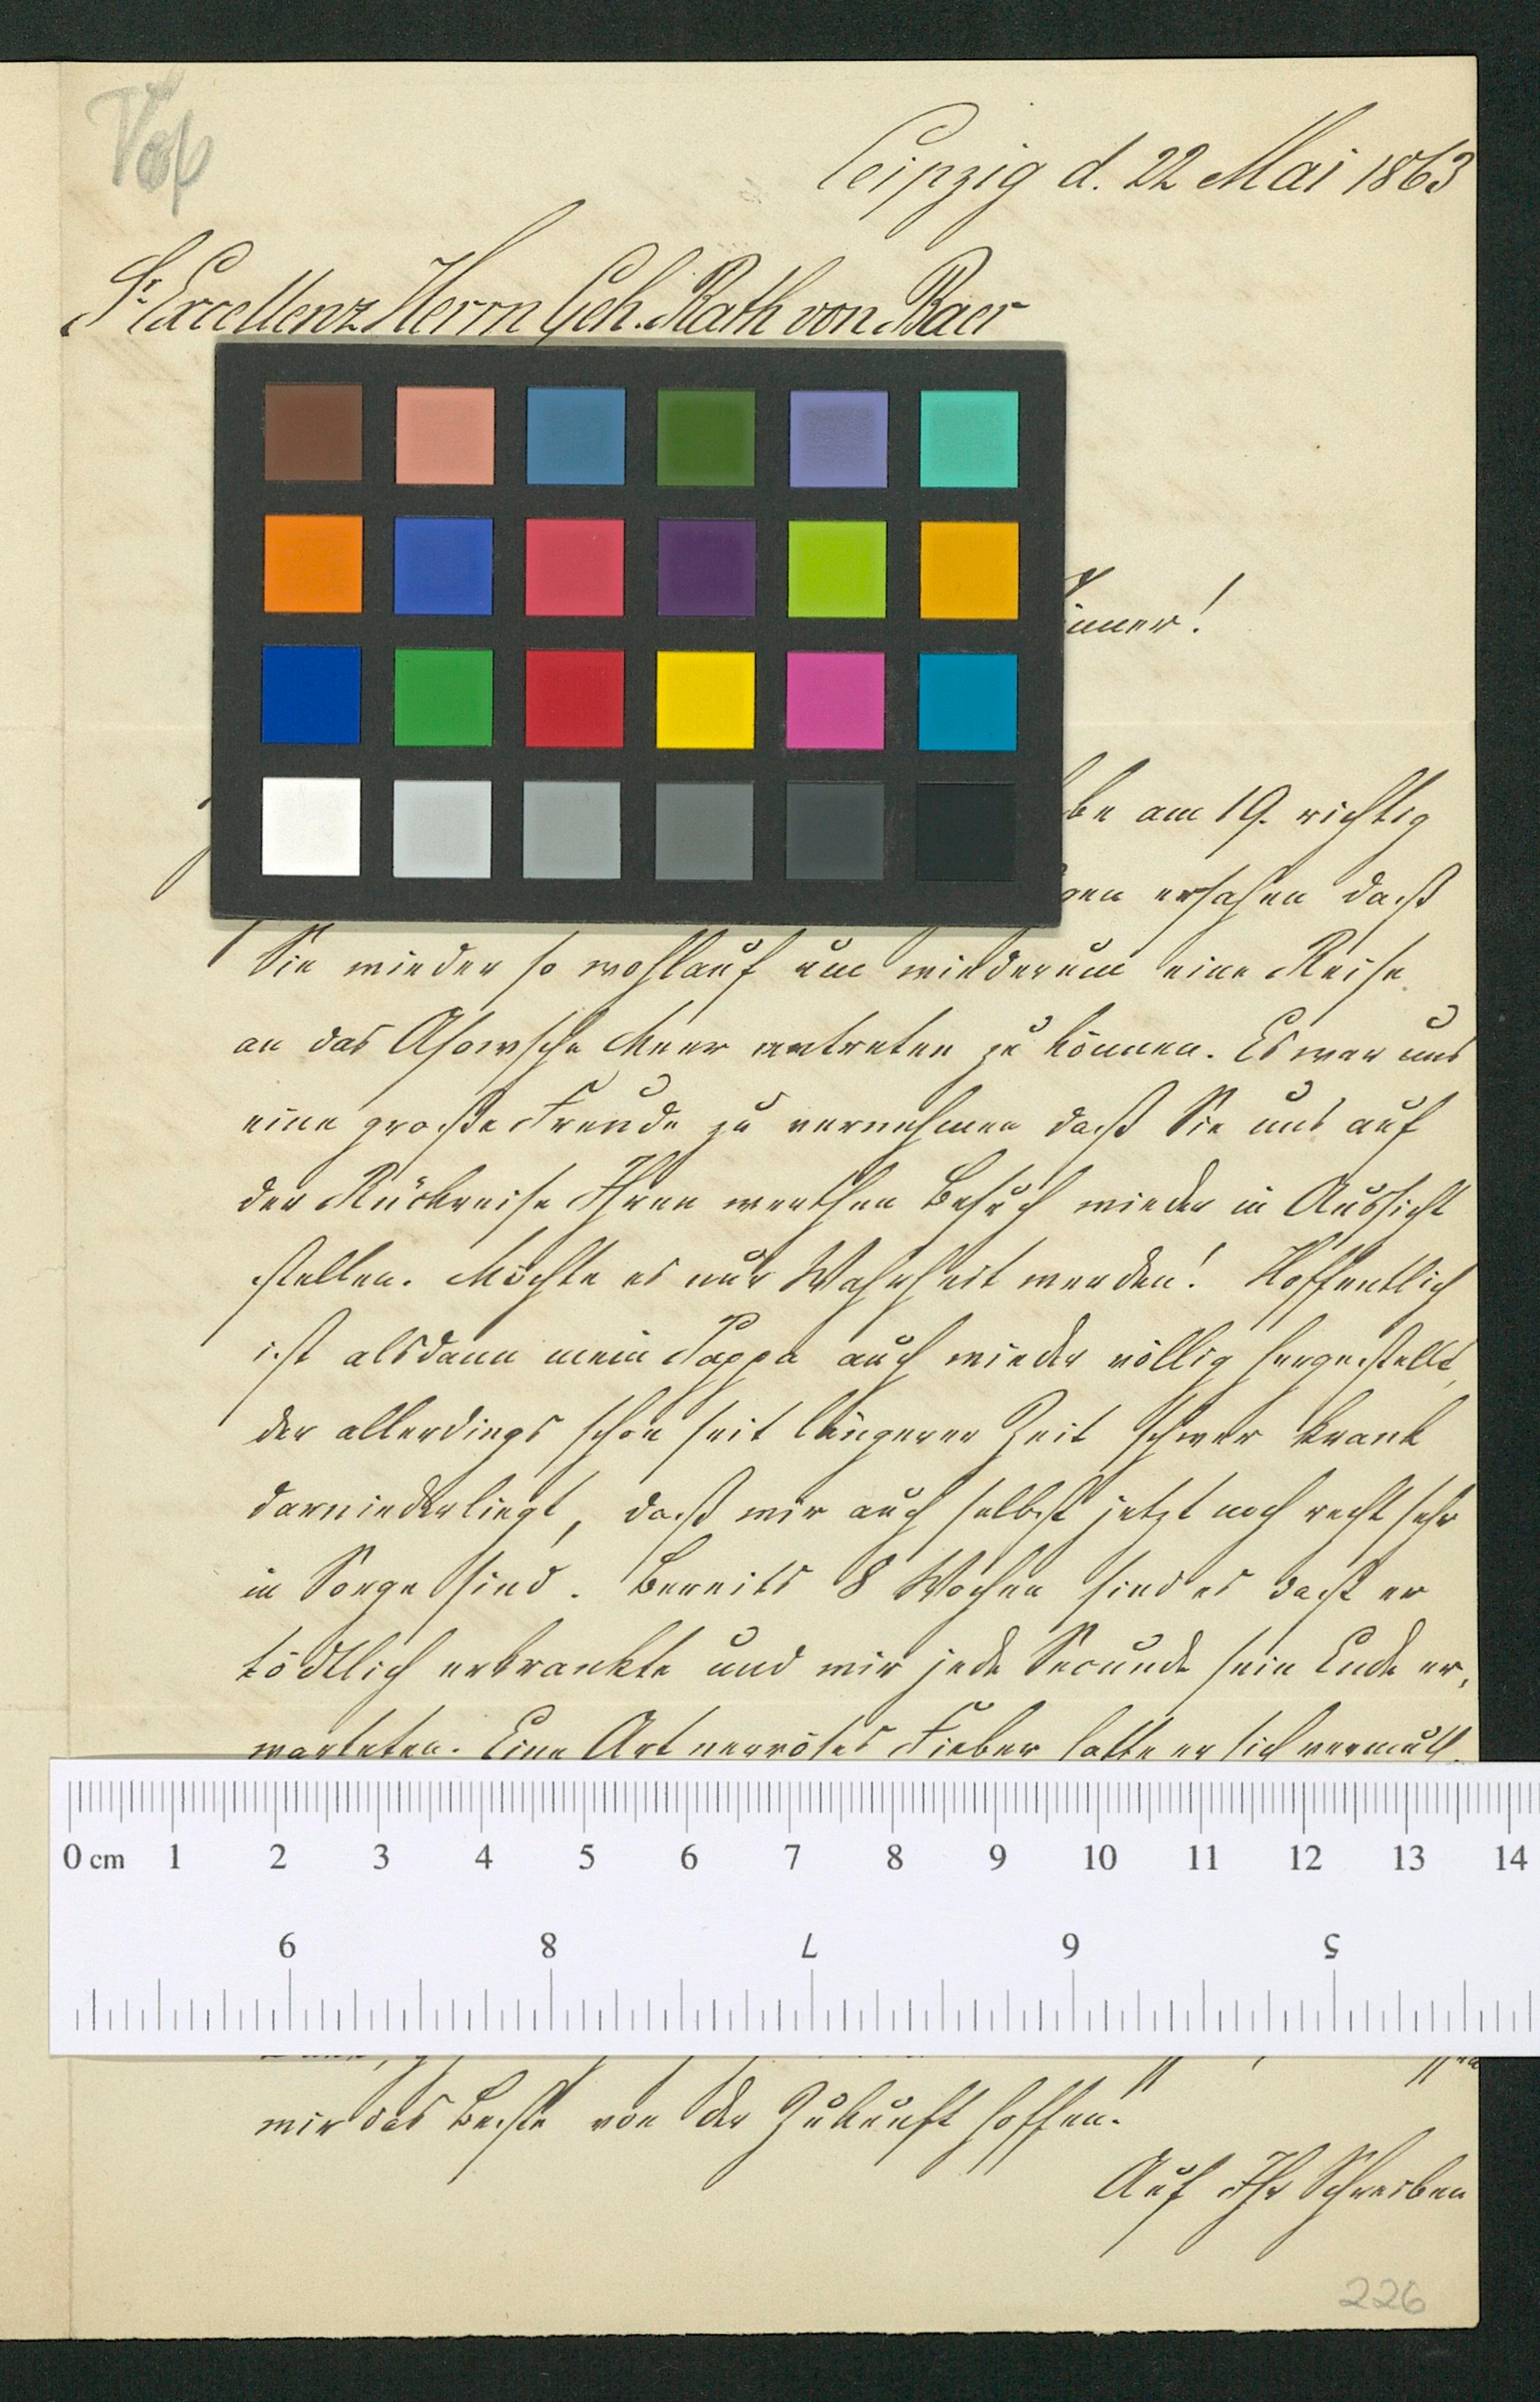 Voß
Leipzig d. 22 Mai 1863
Sr. Excellenz Herrn Geh. Rath von Baer
nner!
be am 19. richtig
gen ersehen daß
Sie wieder so wohlauf um wiederum eine Reise
an das Asowsche Meer antreten zu können. Es war uns
eine große Freude zu vernehmen daß Sie uns auf
der Rückreise Ihren werthen Besuch wieder in Aussicht
stellen. Möchte es nur Wahrheit werden! Hoffentlich
ist alsdann mein Pappa auch wieder völlig hergestellt,
der allerdings schon seit längerer Zeit schwer krank
darniederliegt, daß wir auch selbst jetzt noch recht sehr
in Sorge sind. Bereits 8 Wochen sind es daß er
tödtlich erkrankte und wir jede Secunde sein Ende er-
warteten. Eine Art nervöses Fieber hatte er sich vermuth-
0 cm 1 2 3 4 5 6 7 8 9 10 11 12 13 14
9 8 7 6 5
wir das Beste von der Zukunft hoffen.
Auf Ihr Schreiben
226